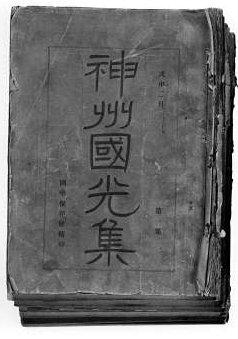 戊申二月
神州國光集
第一集
國學保存會精印